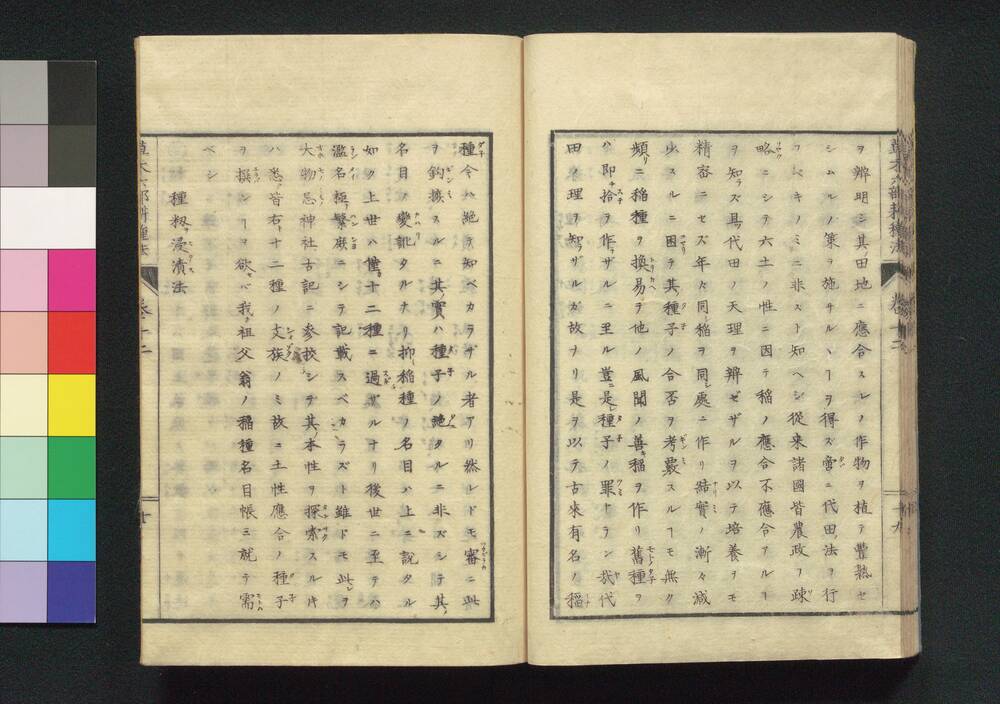 ヲ辨明シ其田地ニ應合スルノ作物ヲ植テ豐熟セ
シムルノ策ヲ施サルヽヿヲ得ズ啻ニ代田ノ法ヲ行
フベキノミニ非スト知ヘシ從来諸國皆農政ヲ疎
略ニシテ六土ノ性ニ因テ稲ノ應合不應合アルヿ
ヲ知ラズ且代田ノ天理ヲ辨ゼザルヲ以テ培養ヲモ
精密ニセズ年々同稲ヲ同處ニ作リ結實ノ漸々減
少スルニ困テ其種子ノ合否ヲ考覈スルヿモ無ク
頻リニ稲種ヲ換易テ他ノ風聞ノ善稲ヲ作リ舊種ヲ
ハ即拾テ作ザルニ至ル豈ニ是レ種子ノ罪トランヤ代
田ノ理ヲ知ザルガ故ナリ是ヲ以テ古來有名ノ稲
種今ハ絶テ知ベカラザル者アリ然レドモ審ニ此
ヲ鈎擦スルニ其實ハ種子ノ絶タルニ非ズシテ其
名目ノ變訛タルナリ抑稲種ノ名目ハ上ニ説タル
如ク上世ハ僅十二種ニ過ザルナリ後世ニ至テハ
濫名極テ繁麻ニシテ記載スベカラズト雖ドモ此ヲ
大物忌神社ノ古記ニ参挍シテ其本性ヲ探索スル片
ハ悉ク皆右ノ十二種ノ支族ノミ故ニ土性應合ノ種子
ヲ撰ンヿヲ欲バ我祖父翁ノ稲種名目帳ニ就テ需
ベシ
種籾ヲ浸漬法
草木六部耕種法
卷十二
十九